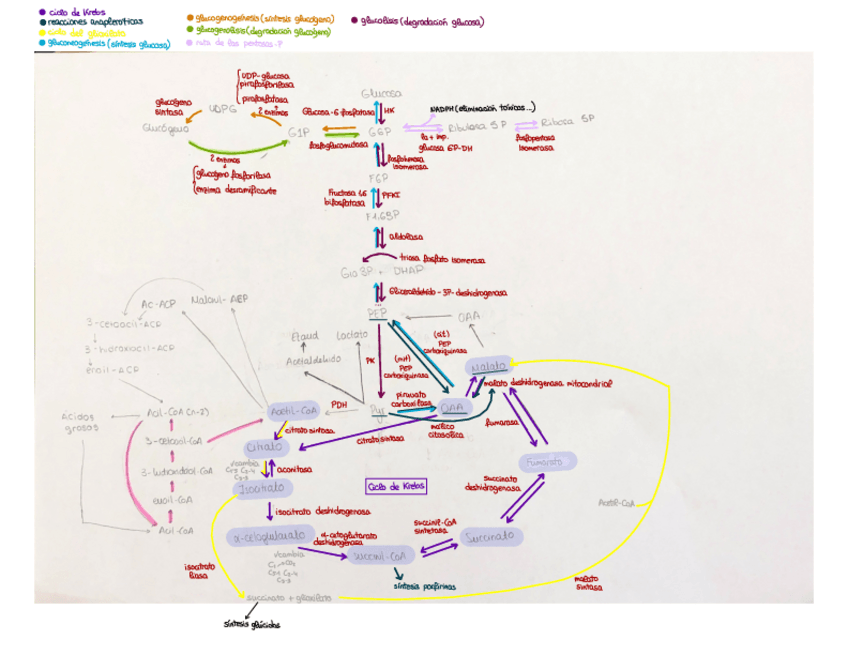 ciclo de Krebs
reacciones anapleroticas
ciclo del glioxilato
gluconeogénesis (síntesis glucosa)
glucogenogénesis (síntesis glucógeno)
glucogenolisis (degradación glucógeno)
ruta de las pentosas-P
glucolisis (degradación glucosa)
UDP-glucosa
pirofosforilasa
pirofosfatasa
2 enzimas
glucogeno
sintasa
UDPG
Glucógeno
G1P
2 enzimas
glucogeno fosforilasa
enzima desramificante
Glucosa
HK
Glucosa-6-fosfatasa
G6P
fosfoglucomutasa
NADPH (eliminación tóxicos...)
Ribulosa 5P
Ribosa 5P
la + imp.
glucosa 6P-DH
fosfopentosa
isomerasa
fosfohexosa
isomerasa
F6P
Fructosa 1,6
bifosfatasa
PFK1
F1,6BP
aldolasa
triosa fosfato isomerasa
Gla 3P + DHAP
Gliceraldehido-3P-deshidrogenasa
PEP
OAA
Ac-ACP
Malonil-ACP
3-cetoacil-ACP
3-hidroxiacil-ACP
enoil-ACP
Etanol
Lactato
Acetaldehido
PK
(mit)
PEP
carboxiquinasa
(cit)
PEP
carboxiquinasa
Malato
malato deshidrogenasa mitocondrial
Ácidos
grasos
Acil-CoA (n-2)
Acetil-CoA
PDH
Pyr
piruvato
carboxilasa
OAA
málico
citosólica
fumarasa
citrato sintasa
citrato sintasa
3-cetoacil-CoA
Citrato
aconitasa
3-hidroxiacil-CoA
Isocitrato
Ciclo de Krebs
Fumarato
succinato
deshidrogenasa
enoil-CoA
isocitrato deshidrogenasa
Acetil-CoA
Acil-CoA
α-cetoglutarato
α-cetoglutarato
deshidrogenasa
succinil-CoA
sintetasa
Succinato
succinil-CoA
isocitrato
liasa
síntesis porfirinas
malato
sintasa
succinato + glioxilato
síntesis glúcidos